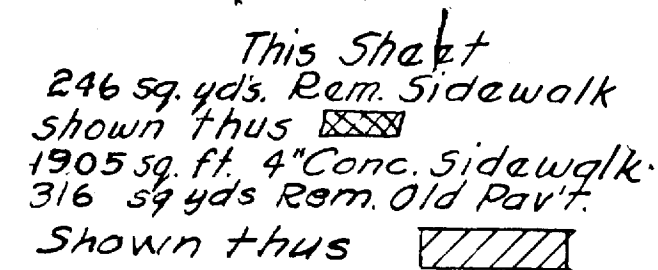 This Sheet
246 sq. yds. Rem. Sidewalk
shown thus
1905 sq. ft. 4" Conc. Sidewalk.
316 sq yds Rem. Old Pav't.
Shown thus